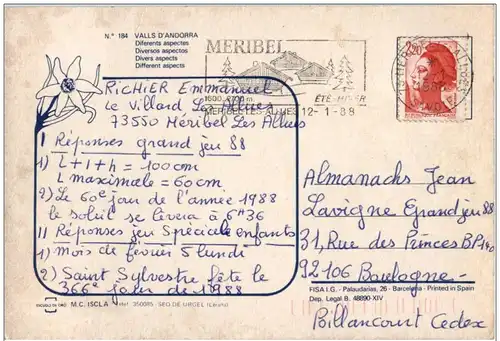 N.º 184 VALLS D'ANDORRA
Diferents aspectes
Diversos aspectos
Divers aspects
Different aspects
MERIBEL
ETE-HIVER
12-1-88
2,20
RiCHiER Emmanuel
Le Villard Les Allues
73550 Méribel Les Allues
I Réponses grand jeu 88
1) L+l+h = 100cm
L maximale = 60cm
2) Le 60e jour de l'année 1988
le soleil se lèvera à 6H36
II Réponses jeu Spéciale enfants
1) mois de février 5 lundi
2) Saint Sylvestre fête le
366e jour de 1988
Almanachs Jean
Lavigne Grand jeu 88
31, Rue des Princes BP 140
92106 Boulogne-
Billancourt Cedex
M.C. ISCLA
SEO DE URGEL (Lérida)
FISA I.G. - Palaudarias, 26 - Barcelona - Printed in Spain
Dep. Legal B. 48890-XIV